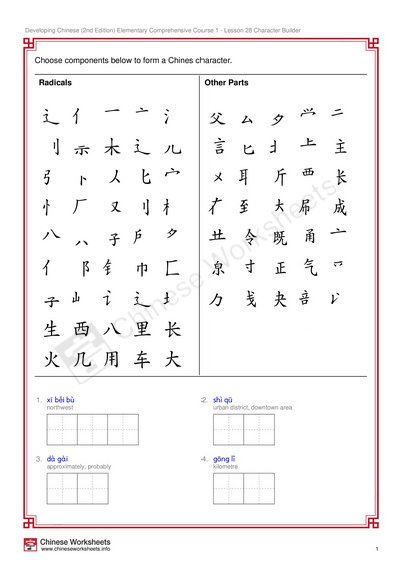 Developing Chinese (2nd Edition) Elementary Comprehensive Course 1 - Lesson 28 Character Builder
Choose components below to form a Chines character.
Radicals
Other Parts
辶 亻 一 亠 氵
父 厶 夕 龸 二
刂 示 木 辶 儿
言 匕 丬 上 主
弓 卜 人 匕 宀
㐅 耳 斤 覀 长
忄 厂 又 刂 木
至 大 吊 成
八 八 子 户 夕
龷 令 既 甬 亠
亻 阝 钅 巾 匚
寸 正 气
子 山 讠 辶 扌
力 戋 夬 咅
生 西 八 里 长
火 几 用 车 大
Chinese Worksheets
1. xī běi bù
northwest
2. shì qū
urban district, downtown area
3. dà gài
approximately, probably
4. gōng lǐ
kilometre
Chinese Worksheets
www.chineseworksheets.info
1